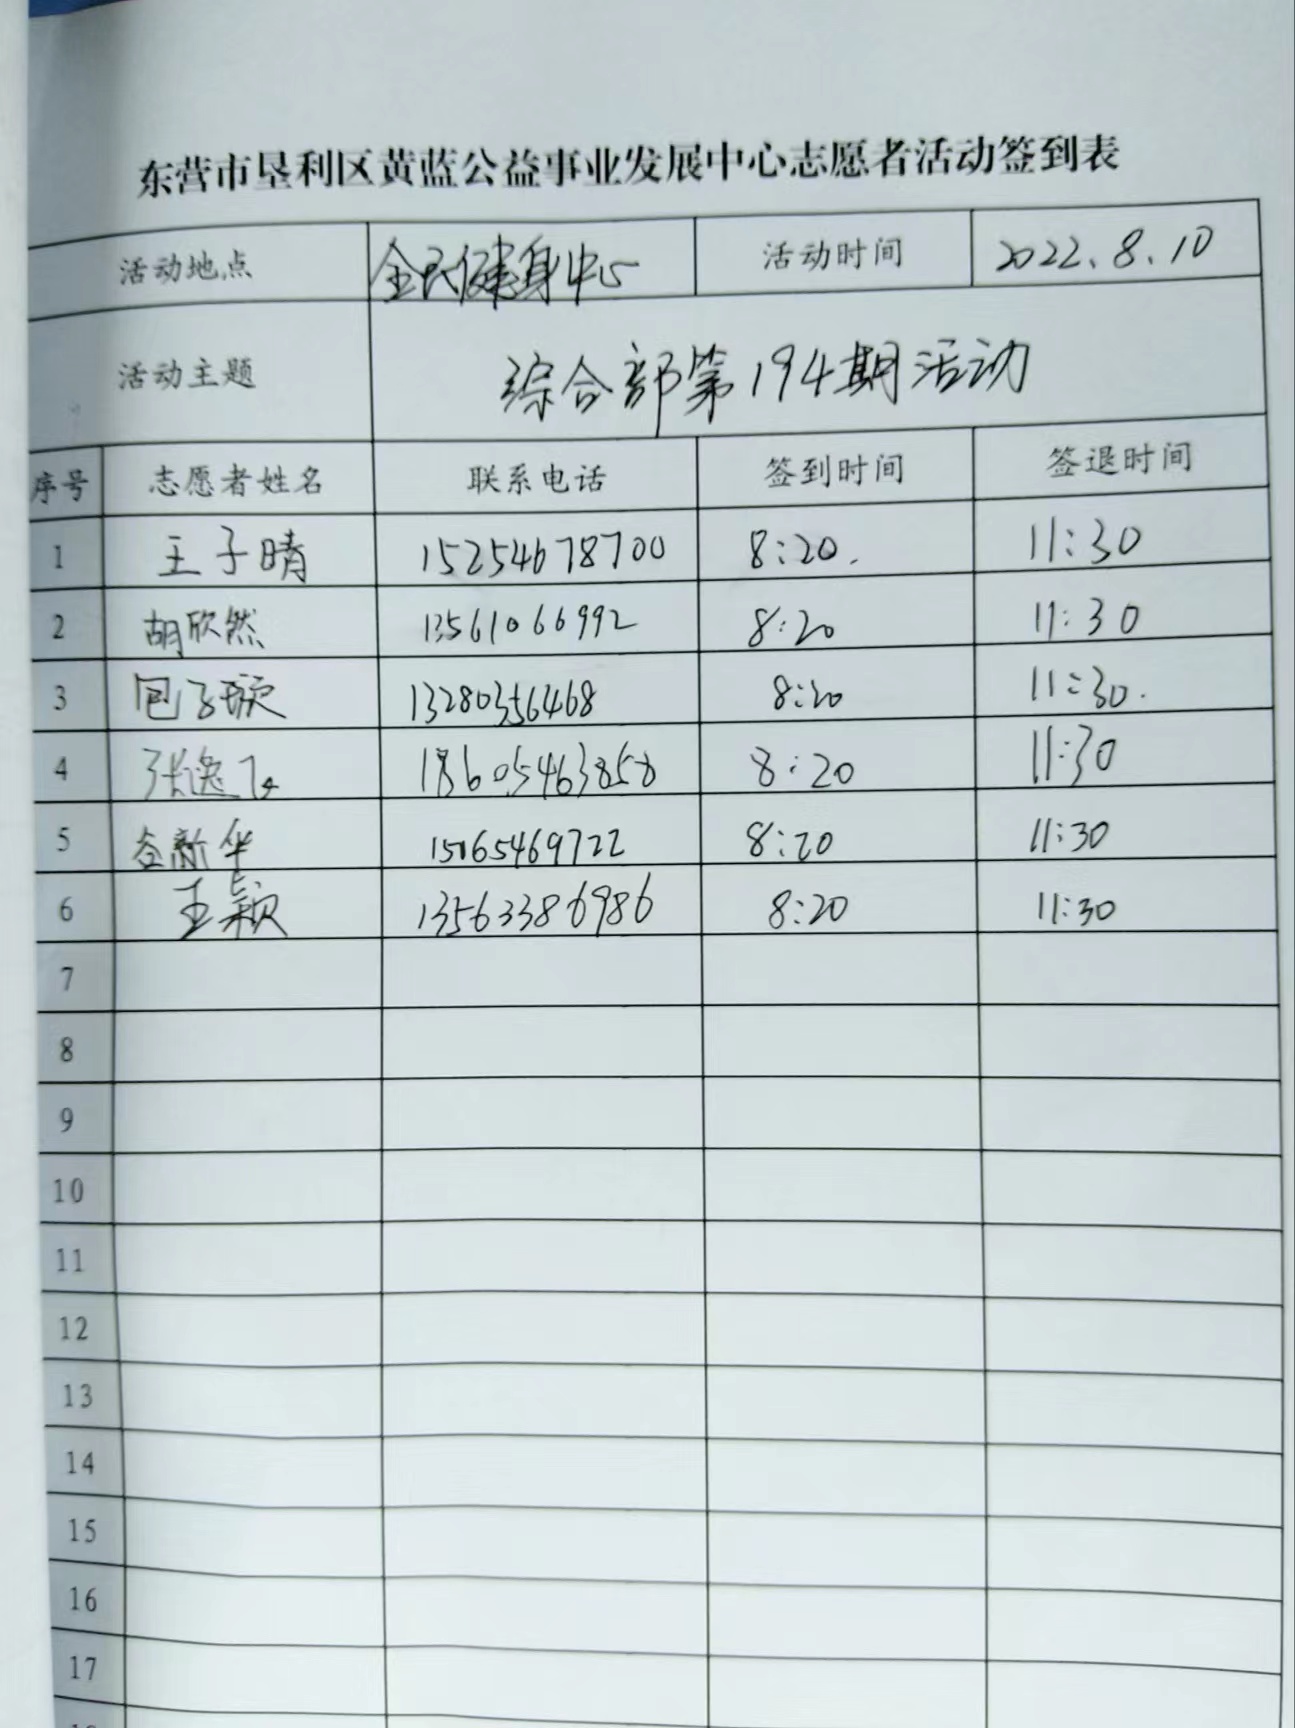 东营市垦利区黄蓝公益事业发展中心志愿者活动签到表
活动地点 全民健身中心 活动时间 2022.8.10
活动主题 综合部第194期活动
序号 志愿者姓名 联系电话 签到时间 签退时间
1 王子晴 15254678700 8:20. 11:30
2 胡欣然 13561066992 8:20 11:30
3 13280356468 8:20 11:30.
4 张逸飞 18605463858 8:20 11:30
5 谷新华 15065469722 8:20 11:30
6 王颖 13563386986 8:20 11:30
7
8
9
10
11
12
13
14
15
16
17